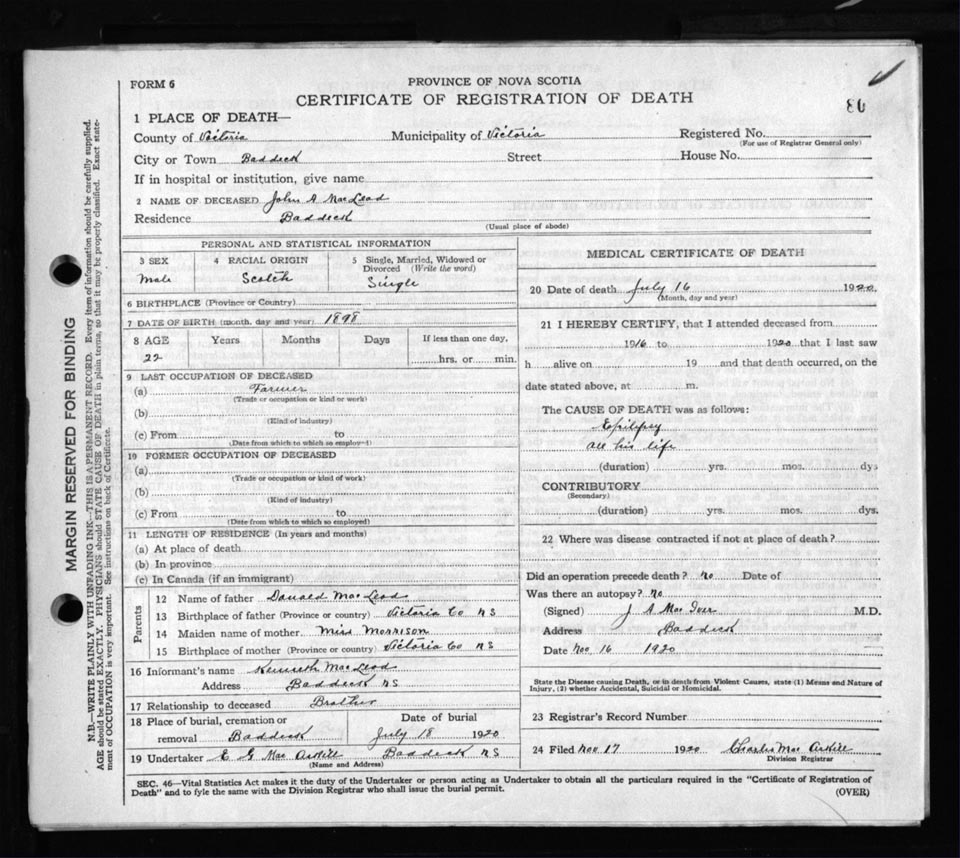 FORM 6
PROVINCE OF NOVA SCOTIA
CERTIFICATE OF REGISTRATION OF DEATH
86
1 PLACE OF DEATH—
County of Victoria Municipality of Victoria Registered No.
(For use of Registrar General only)
City or Town Baddeck Street House No.
If in hospital or institution, give name
2 NAME OF DECEASED John A MacLeod
Residence Baddeck
(Usual place of abode)
PERSONAL AND STATISTICAL INFORMATION
3 SEX 4 RACIAL ORIGIN 5 Single, Married, Widowed or Divorced (Write the word)
Male Scotch Single
6 BIRTHPLACE (Province or Country)
7 DATE OF BIRTH (month, day and year) 1898
8 AGE Years Months Days If less than one day,
22 hrs. or min.
9 LAST OCCUPATION OF DECEASED
(a) Farmer
(Trade or occupation or kind or work)
(b)
(Kind of industry)
(c) From to
(Date from which to which so employed)
10 FORMER OCCUPATION OF DECEASED
(a)
(Trade or occupation or kind of work)
(b)
(Kind of industry)
(c) From to
(Date from which to which so employed)
11 LENGTH OF RESIDENCE (In years and months)
(a) At place of death
(b) In province
(c) In Canada (if an immigrant)
Parents
12 Name of father Donald MacLeod
13 Birthplace of father (Province or country) Victoria Co NS
14 Maiden name of mother Miss Morrison
15 Birthplace of mother (Province or country) Victoria Co NS
16 Informant's name Kenneth MacLeod
Address Baddeck NS
17 Relationship to deceased Brother
18 Place of burial, cremation or removal Baddeck
Date of burial
July 18 1920
19 Undertaker E G MacAskill Baddeck NS
(Name and Address)
MEDICAL CERTIFICATE OF DEATH
20 Date of death July 16 1920
(Month, day and year)
21 I HEREBY CERTIFY, that I attended deceased from
1916 to 1920 that I last saw
h alive on 19 and that death occurred, on the
date stated above, at m.
The CAUSE OF DEATH was as follows:
Epilepsy
all his life
(duration) yrs. mos. dys
CONTRIBUTORY
(Secondary)
(duration) yrs. mos. dys.
22 Where was disease contracted if not at place of death?
Did an operation precede death? No Date of
Was there an autopsy? No
(Signed) J A MacIver M.D.
Address Baddeck
Date Nov 16 1920
State the Disease causing Death, or in death from Violent Causes, state (1) Means and Nature of
Injury, (2) whether Accidental, Suicidal or Homicidal.
23 Registrar's Record Number
24 Filed Nov 17 1920 Charles MacAskill
Division Registrar
SEC. 46—Vital Statistics Act makes it the duty of the Undertaker or person acting as Undertaker to obtain all the particulars required in the "Certificate of Registration of
Death" and to fyle the same with the Division Registrar who shall issue the burial permit.
(OVER)
MARGIN RESERVED FOR BINDING
N.B.—WRITE PLAINLY WITH UNFADING INK—THIS IS A PERMANENT RECORD. Every item of information should be carefully supplied.
AGE should be stated EXACTLY. PHYSICIANS should STATE CAUSE OF DEATH in plain terms, so that it may be properly classified. Exact state-
ment of OCCUPATION is very important. See instructions on back of Certificate.